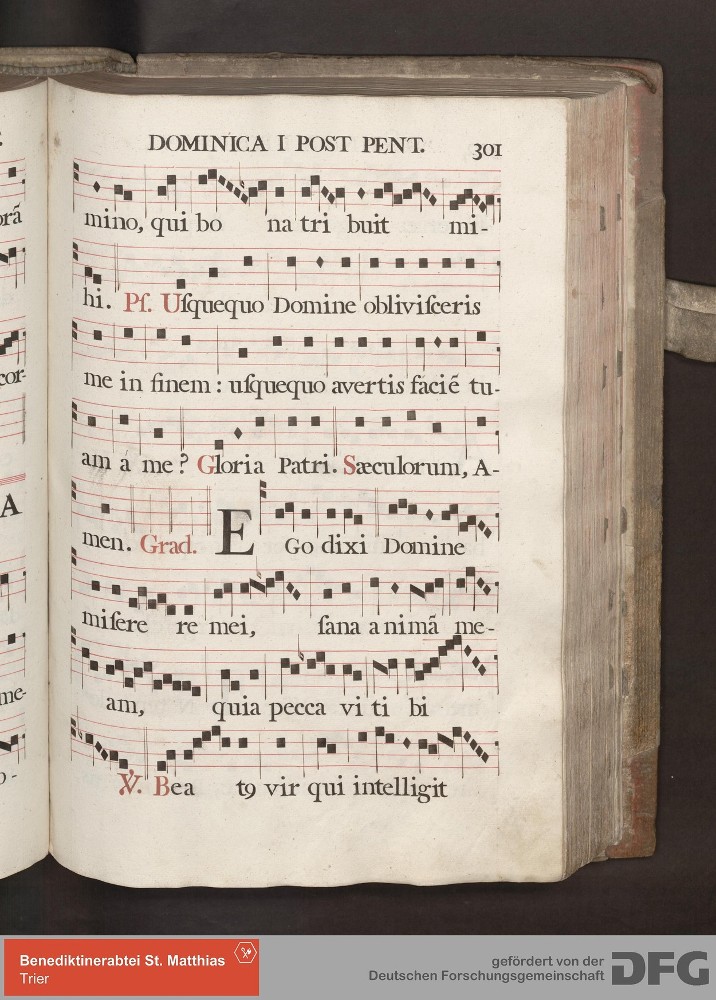 DOMINICA I POST PENT. 301
mino, qui bo na tri buit mi-
hi. Pſ. Uſquequo Domine obliviſceris
me in finem : uſquequo avertis faciē tu-
am á me ? Gloria Patri. Sæculorum, A-
men. Grad. EGo dixi Domine
miſere re mei, ſana a nimã me-
am, quia pecca vi ti bi
℣. Bea tꝯ vir qui intelligit
orã
cor-
A
me-
o-
Benediktinerabtei St. Matthias
Trier
gefördert von der
Deutschen Forschungsgemeinschaft
DFG